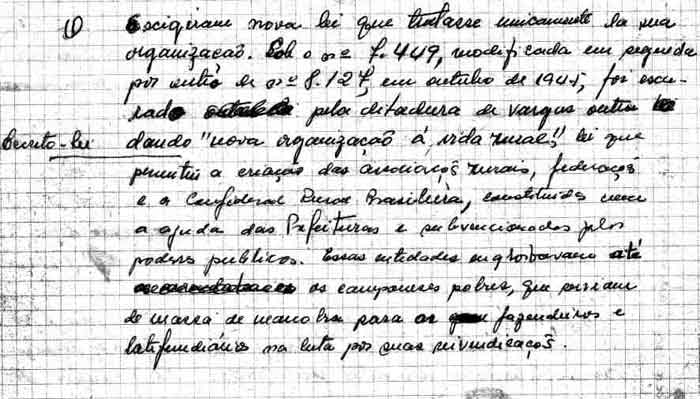 ① Exigiram nova lei que tratasse unicamente da sua
organização. Sob o nº 7.449, modificada em seguida
por outro de nº 8.127, em outubro de 1945, foi
pela ditadura de Vargas outro
Decreto-lei dando "nova organização à vida rural", lei que
permitiu a criação das associaçõs rurais, federaçõs
e a Confederal Rural Brasileira, constituidas com
a ajuda das Prefeituras e subvencionadas pelos
poderes publicos. Essas entidades englobavam até
os camponeses pobres, que serviam
de massa de manobra para os fazendeiros e
latifundiários na luta por suas reivindicaçõs.